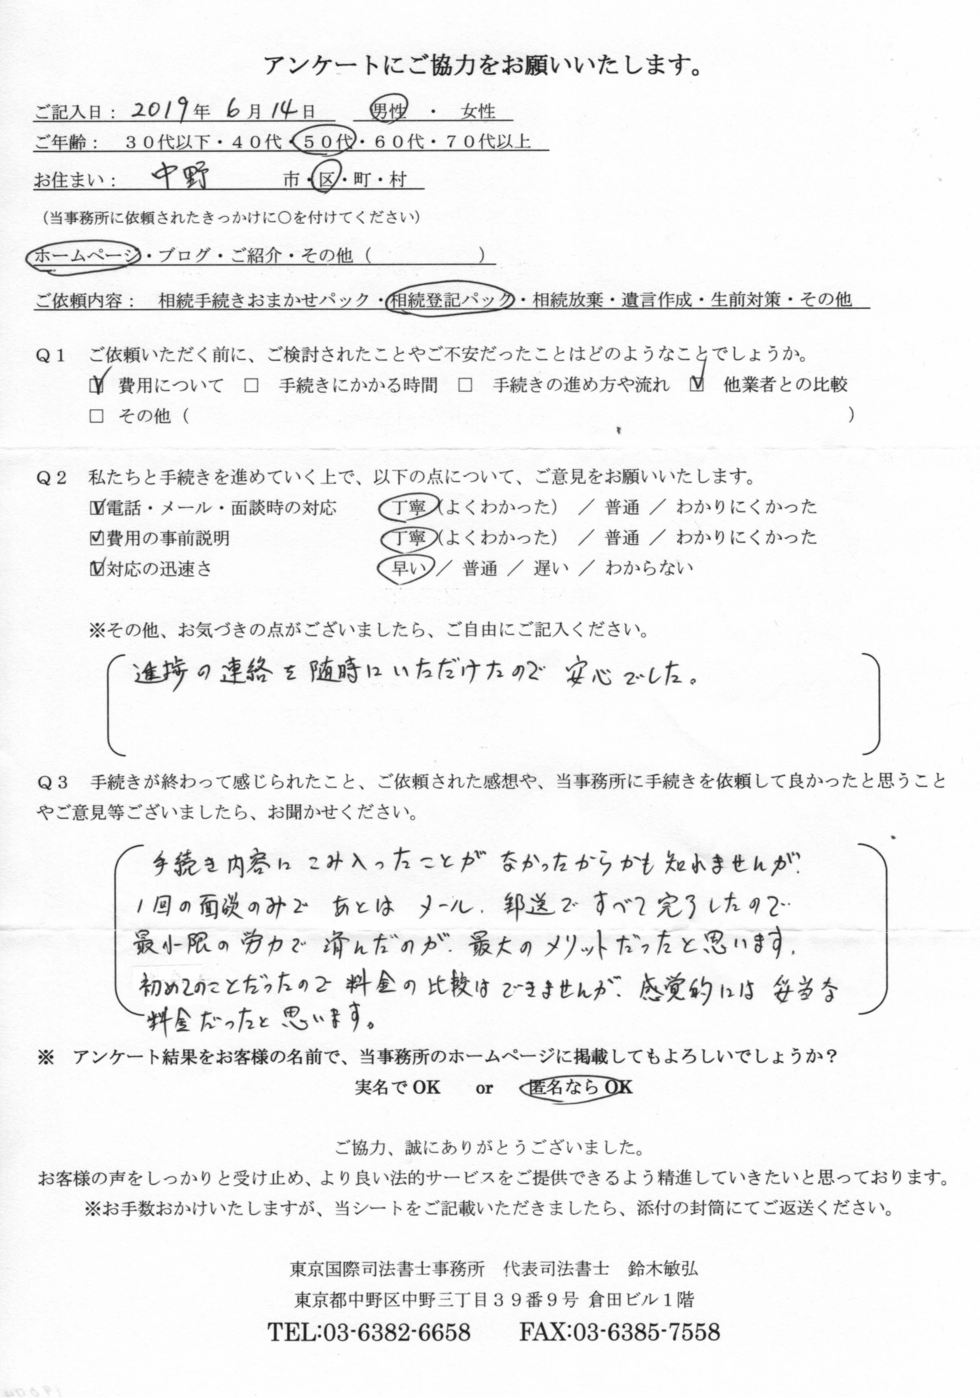 アンケートにご協力をお願いいたします。
ご記入日： 2019年 6月 14日 男性 ・ 女性
ご年齢： 30代以下・40代・50代・60代・70代以上
お住まい： 中野 市・区・町・村
（当事務所に依頼されたきっかけに○を付けてください）
ホームページ・ブログ・ご紹介・その他（ ）
ご依頼内容： 相続手続きおまかせパック・相続登記パック・相続放棄・遺言作成・生前対策・その他
Q1 ご依頼いただく前に、ご検討されたことやご不安だったことはどのようなことでしょうか。
☑ 費用について □ 手続きにかかる時間 □ 手続きの進め方や流れ ☑ 他業者との比較
□ その他（ ）
Q2 私たちと手続きを進めていく上で、以下の点について、ご意見をお願いいたします。
☑電話・メール・面談時の対応 丁寧（よくわかった） ／ 普通 ／ わかりにくかった
☑費用の事前説明 丁寧（よくわかった） ／ 普通 ／ わかりにくかった
☑対応の迅速さ 早い ／ 普通 ／ 遅い ／ わからない
※その他、お気づきの点がございましたら、ご自由にご記入ください。
進捗の連絡を随時にいただけたので 安心でした。
Q3 手続きが終わって感じられたこと、ご依頼された感想や、当事務所に手続きを依頼して良かったと思うこと
やご意見等ございましたら、お聞かせください。
手続き内容にこみ入ったことが なかったからかも知れませんが、
1回の面談のみで あとは メール、郵送で すべて完了したので
最小限の労力で 済んだのが、最大のメリットだったと思います。
初めてのことだったので 料金の比較は できませんが、感覚的には 妥当な
料金だったと思います。
※ アンケート結果をお客様の名前で、当事務所のホームページに掲載してもよろしいでしょうか？
実名でOK or 匿名ならOK
ご協力、誠にありがとうございました。
お客様の声をしっかりと受け止め、より良い法的サービスをご提供できるよう精進していきたいと思っております。
※お手数おかけいたしますが、当シートをご記載いただきましたら、添付の封筒にてご返送ください。
東京国際司法書士事務所 代表司法書士 鈴木敏弘
東京都中野区中野三丁目39番9号 倉田ビル1階
TEL:03-6382-6658 FAX:03-6385-7558